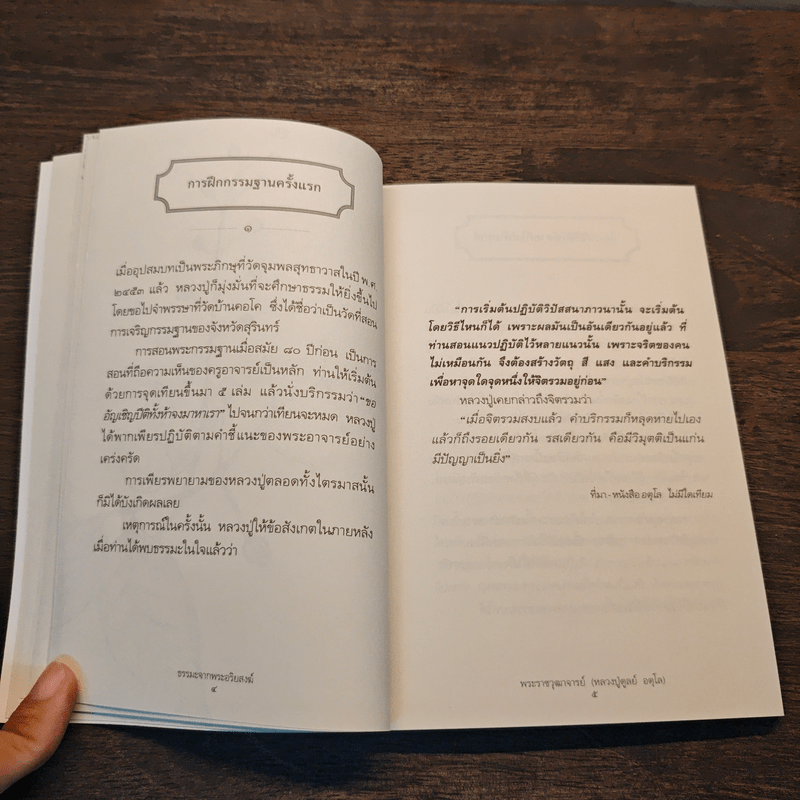 การฝึกกรรมฐานครั้งแรก
๑
เมื่ออุปสมบทเป็นพระภิกษุที่วัดจุมพลสุทธาวาสในปี พ.ศ.
๒๔๕๓ แล้ว หลวงปู่ก็มุ่งมั่นที่จะศึกษาธรรมให้ยิ่งขึ้นไป
โดยขอไปจำพรรษาที่วัดบ้านคอโค ซึ่งได้ชื่อว่าเป็นวัดที่สอน
การเจริญกรรมฐานของจังหวัดสุรินทร์
การสอนพระกรรมฐานเมื่อสมัย ๘๐ ปีก่อน เป็นการ
สอนที่ถือความเห็นของครูอาจารย์เป็นหลัก ท่านให้เริ่มต้น
ด้วยการจุดเทียนขึ้นมา ๕ เล่ม แล้วนั่งบริกรรมว่า “ขอ
อัญเชิญปีติทั้งห้าจงมาหาเรา” ไปจนกว่าเทียนจะหมด หลวงปู่
ได้พากเพียรปฏิบัติตามคำชี้แนะของพระอาจารย์อย่าง
เคร่งครัด
การเพียรพยายามของหลวงปู่ตลอดทั้งไตรมาสนั้น
ก็มิได้บังเกิดผลเลย
เหตุการณ์ในครั้งนั้น หลวงปู่ให้ข้อสังเกตในภายหลัง
เมื่อท่านได้พบธรรมะในใจแล้วว่า
ธรรมะจากพระอริยสงฆ์
๔
“การเริ่มต้นปฏิบัติวิปัสสนาภาวนานั้น จะเริ่มต้น
โดยวิธีไหนก็ได้ เพราะผลมันเป็นอันเดียวกันอยู่แล้ว ที่
ท่านสอนแนวปฏิบัติไว้หลายแนวนั้น เพราะจริตของคน
ไม่เหมือนกัน จึงต้องสร้างวัตถุ สี แสง และคำบริกรรม
เพื่อหาจุดใดจุดหนึ่งให้จิตรวมอยู่ก่อน”
หลวงปู่เคยกล่าวถึงจิตรวมว่า
“เมื่อจิตรวมสงบแล้ว คำบริกรรมก็หลุดหายไปเอง
แล้วก็ถึงรอยเดียวกัน รสเดียวกัน คือมีวิมุตติเป็นแก่น
มีปัญญาเป็นยิ่ง”
ที่มา - หนังสือ อตุโล ไม่มีใดเทียม
พระราชวุฒาจารย์ (หลวงปู่ดูลย์ อตุโล)
๕